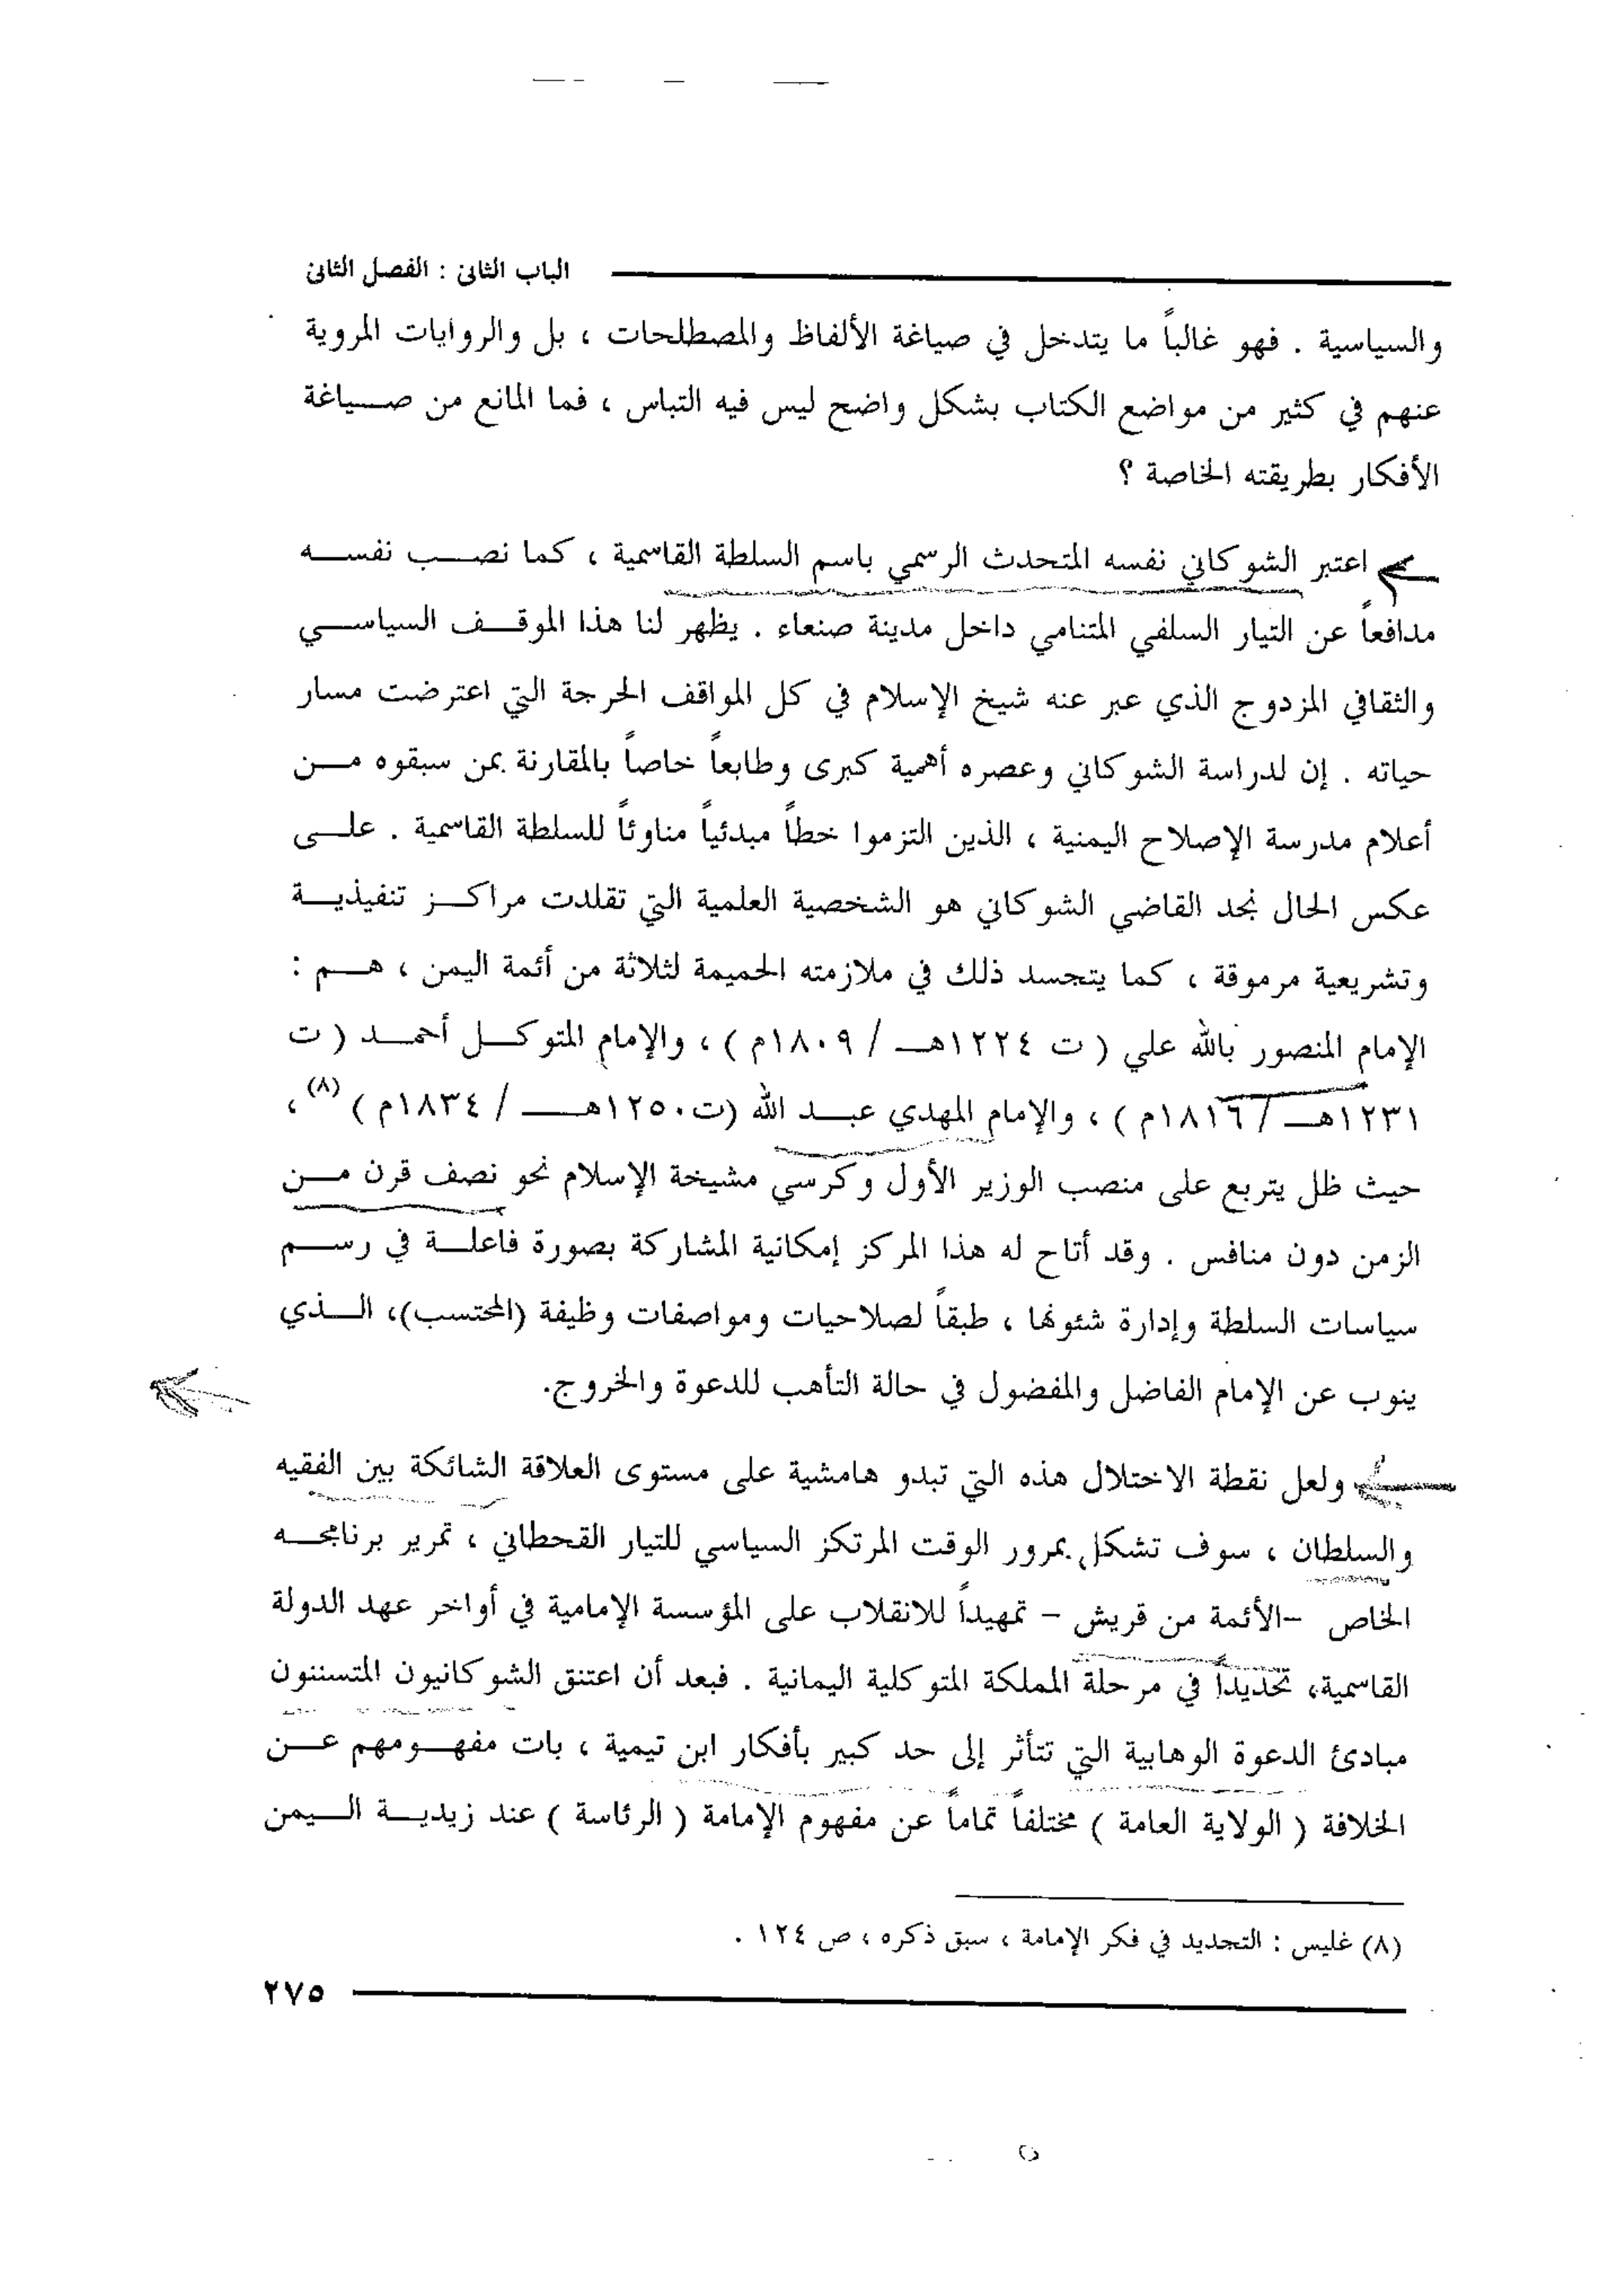 الباب الثانى : الفصل الثانى
والسياسية . فهو غالباً ما يتدخل في صياغة الألفاظ والمصطلحات ، بل والروايات المروية
عنهم في كثير من مواضع الكتاب بشكل واضح ليس فيه التباس ، فما المانع من صياغة
الأفكار بطريقته الخاصة ؟
اعتبر الشوكاني نفسه المتحدث الرسمي باسم السلطة القاسمية ، كما نصب نفسه
مدافعاً عن التيار السلفي المتنامي داخل مدينة صنعاء . يظهر لنا هذا الموقف السياسي
والثقافي المزدوج الذي عبر عنه شيخ الإسلام في كل المواقف الحرجة التي اعترضت مسار
حياته . إن لدراسة الشوكاني وعصره أهمية كبرى وطابعاً خاصاً بالمقارنة بمن سبقوه من
أعلام مدرسة الإصلاح اليمنية ، الذين التزموا خطاً مبدئياً مناوئاً للسلطة القاسمية . على
عكس الحال نجد القاضي الشوكاني هو الشخصية العلمية التي تقلدت مراكز تنفيذية
وتشريعية مرموقة ، كما يتجسد ذلك في ملازمته الحميمة لثلاثة من أئمة اليمن ، هم :
الإمام المنصور بالله علي ( ت ١٢٢٤هـ / ١٨٠٩م ) ، والإمام المتوكل أحمد ( ت
١٢٣١هـ / ١٨١٦م ) ، والإمام المهدي عبد الله (ت١٢٥٠هـ / ١٨٣٤م ) (٨) ،
حيث ظل يتربع على منصب الوزير الأول وكرسي مشيخة الإسلام نحو نصف قرن من
الزمن دون منافس . وقد أتاح له هذا المركز إمكانية المشاركة بصورة فاعلة في رسم
سياسات السلطة وإدارة شئونها ، طبقاً لصلاحيات ومواصفات وظيفة (المحتسب)، الذي
ينوب عن الإمام الفاضل والمفضول في حالة التأهب للدعوة والخروج.
ولعل نقطة الاختلال هذه التي تبدو هامشية على مستوى العلاقة الشائكة بين الفقيه
والسلطان ، سوف تشكل بمرور الوقت المرتكز السياسي للتيار القحطاني ، تمرير برنامجه
الخاص -الأئمة من قريش - تمهيداً للانقلاب على المؤسسة الإمامية في أواخر عهد الدولة
القاسمية، تحديداً في مرحلة المملكة المتوكلية اليمانية . فبعد أن اعتنق الشوكانيون المتسننون
مبادئ الدعوة الوهابية التي تتأثر إلى حد كبير بأفكار ابن تيمية ، بات مفهومهم عن
الخلافة ( الولاية العامة ) مختلفاً تماماً عن مفهوم الإمامة ( الرئاسة ) عند زيدية اليمن
(٨) غليس : التجديد في فكر الإمامة ، سبق ذكره ، ص ١٢٤ .
٢٧٥